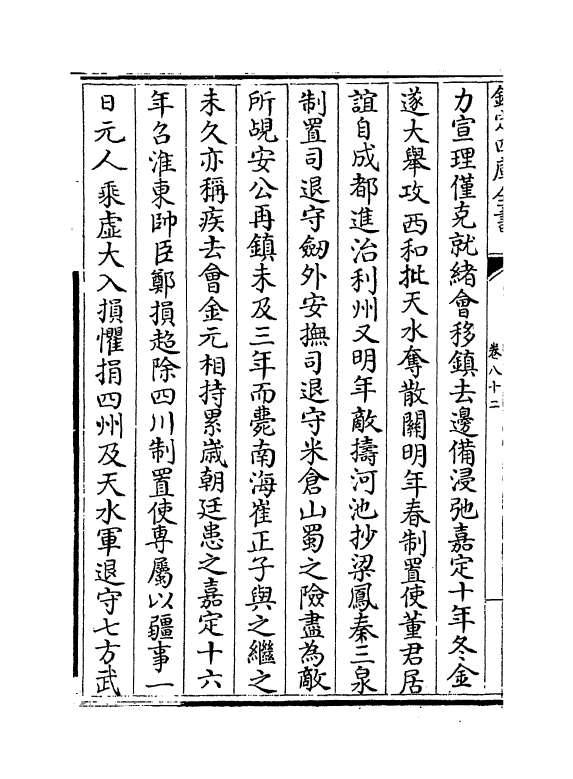 欽定四庫全書
卷八十二
力宣理僅克就緒會移鎮去邊備浸弛嘉定十年冬金
遂大舉攻西和批天水奪散關明年春制置使董君居
誼自成都進治利州又明年敵擣河池抄梁鳳秦三泉
制置司退守劒外安撫司退守米倉山蜀之險盡為敵
所覘安公再鎮未及三年而薨南海崔正子與之繼之
未久亦稱疾去會金元相持累歲朝廷患之嘉定十六
年召淮東帥臣鄭損超除四川制置使専屬以疆事一
日元人乘虛大入損懼捐四州及天水軍退守七方武